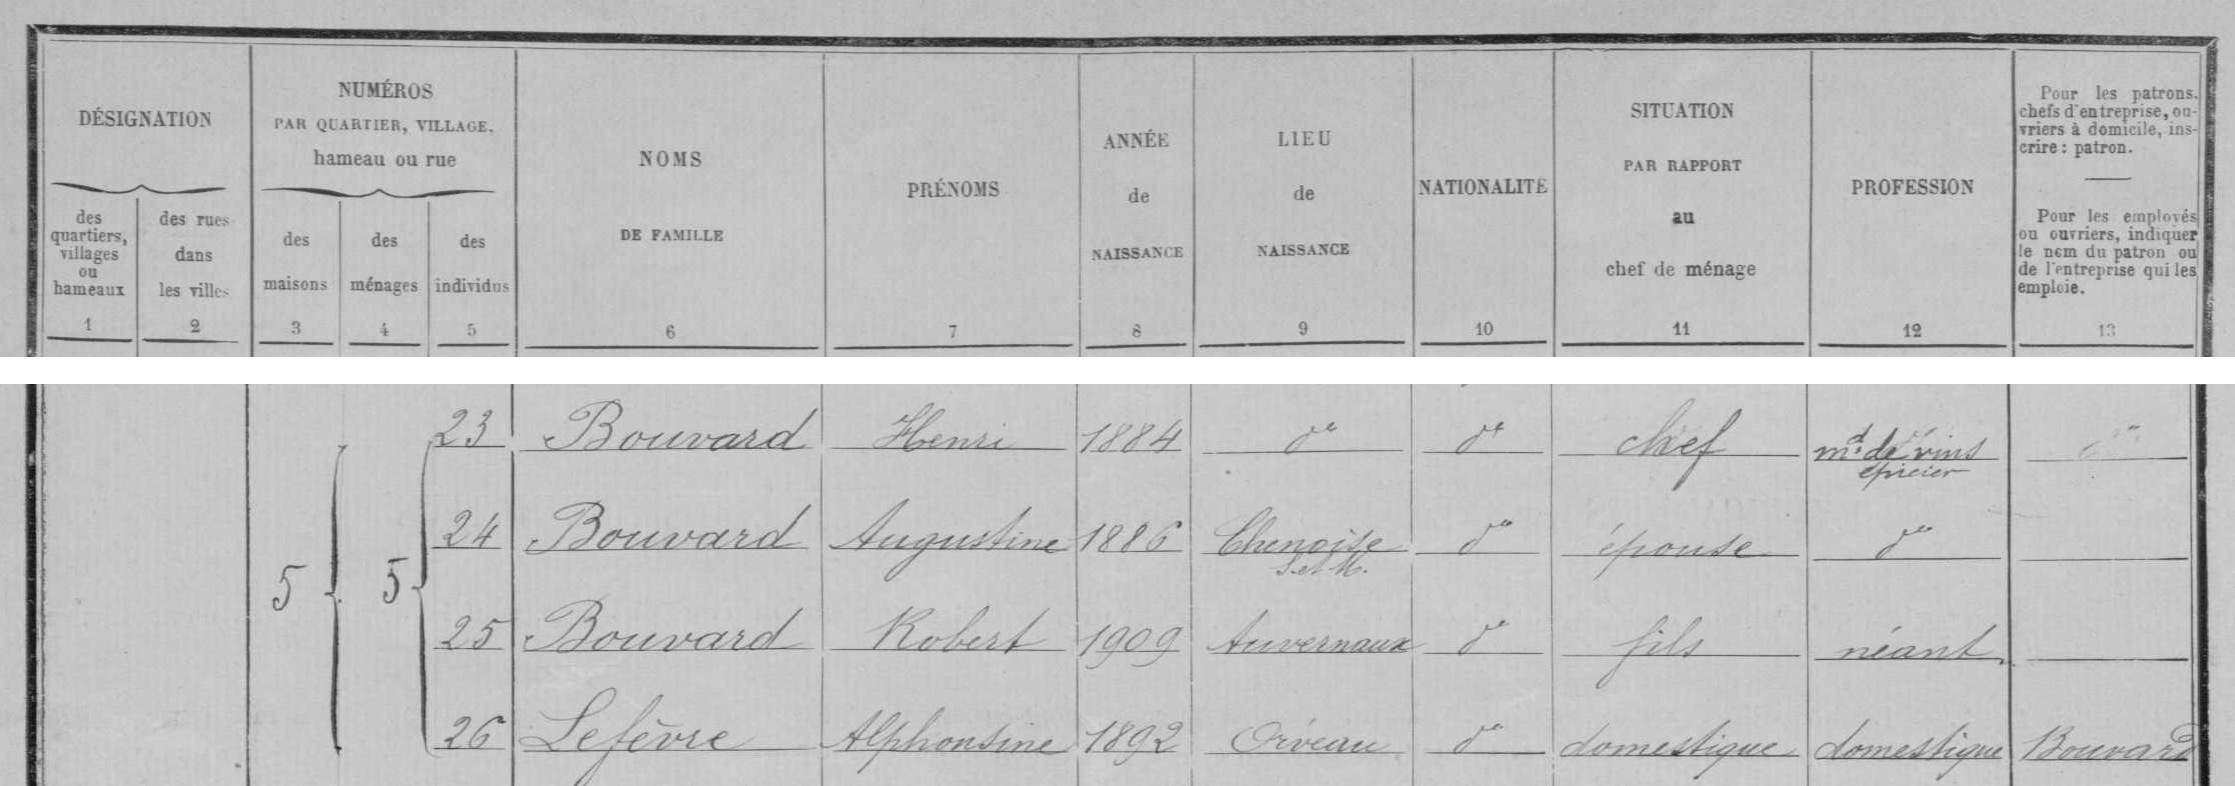 DÉSIGNATION
des quartiers, villages ou hameaux
1
des rues dans les villes
2
NUMÉROS
PAR QUARTIER, VILLAGE,
hameau ou rue
des maisons
3
des ménages
4
des individus
5
NOMS
DE FAMILLE
6
PRÉNOMS
7
ANNÉE
de
NAISSANCE
8
LIEU
de
NAISSANCE
9
NATIONALITÉ
10
SITUATION
PAR RAPPORT
au
chef de ménage
11
PROFESSION
12
Pour les patrons,
chefs d'entreprise, ou-
vriers à domicile, ins-
crire : patron.
Pour les employés
ou ouvriers, indiquer
le nom du patron ou
de l'entreprise qui les
emploie.
13
5 5
23 Bouvard Henri 1884 do do chef md de vins do
épicier
24 Bouvard Augustine 1886 Chenoise do épouse do
S. et M.
25 Bouvard Robert 1909 Auvernaux do fils néant
26 Lefèvre Alphonsine 1892 Orveau do domestique domestique Bouvard